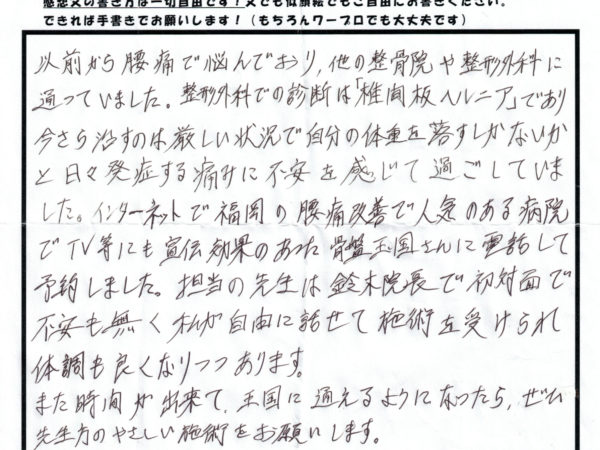 感想文の書き方は一切自由です！文でも似顔絵でもご自由にお書きください。
できれば手書きでお願いします！（もちろんワープロでも大丈夫です）
以前から腰痛で悩んでおり，他の整骨院や整形外科に
通っていました。整形外科での診断は「椎間板ヘルニア」であり
今さら治すのは厳しい状況で自分の体重を落すしかないか
と日々発症する痛みに不安を感じて過ごしていま
した。インターネットで福岡の腰痛改善で人気のある病院
でTV等にも宣伝効果のあった骨盤王国さんに電話して
予約しました。担当の先生は鈴木院長で初対面で
不安も無く私が自由に話せて施術を受けられ
体調も良くなりつつあります。
また時間が出来て、王国に通えるようになったら，ぜひ
先生方のやさしい施術をお願いします。